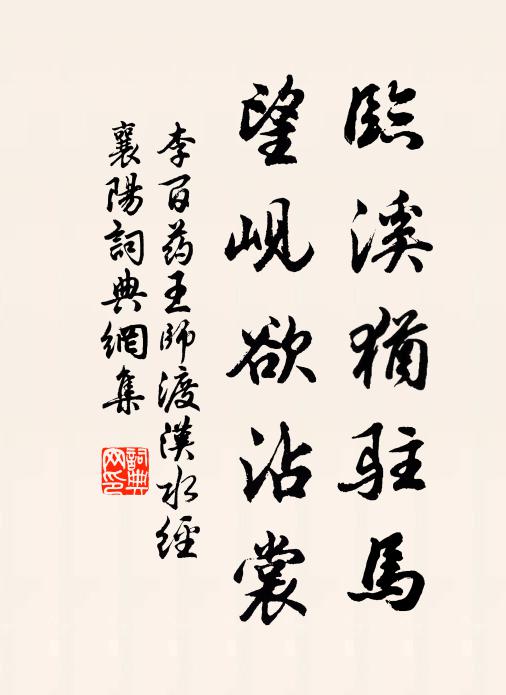 臨溪猶駐馬
望峴欲沾裳
李百药王師渡漢水經
襄陽詞典網集
詞典网印